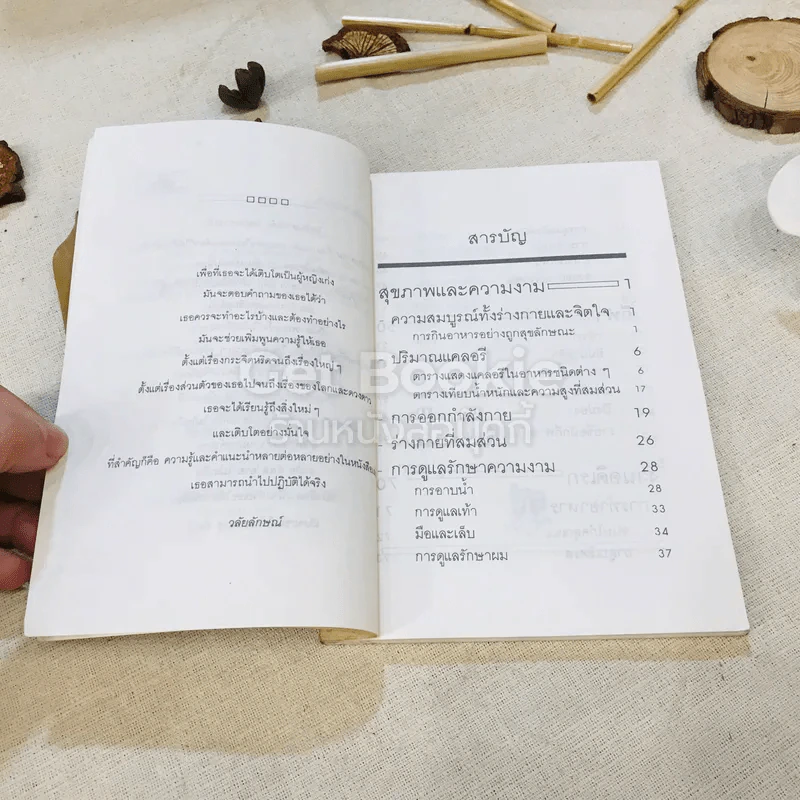 เพื่อที่เธอจะได้เติบโตเป็นผู้หญิงเก่ง
มันจะตอบคำถามของเธอได้ว่า
เธอควรจะทำอะไรบ้างและต้องทำอย่างไร
มันจะช่วยเพิ่มพูนความรู้ให้เธอ
ตั้งแต่เรื่องกระจิตหริดจนถึงเรื่องใหญ่ ๆ
ตั้งแต่เรื่องส่วนตัวของเธอไปจนถึงเรื่องของโลกและดวงดาว
เธอจะได้เรียนรู้ถึงสิ่งใหม่ ๆ
และเติบโตอย่างมั่นใจ
ที่สำคัญก็คือ ความรู้และคำแนะนำหลายต่อหลายอย่างในหนังสือ
เธอสามารถนำไปปฏิบัติได้จริง
วลัยลักษณ์
สารบัญ
สุขภาพและความงาม 1
ความสมบูรณ์ทั้งร่างกายและจิตใจ 1
การกินอาหารอย่างถูกสุขลักษณะ 1
ปริมาณแคลอรี 6
ตารางแสดงแคลอรีในอาหารชนิดต่าง ๆ 6
ตารางเทียบน้ำหนักและความสูงที่สมส่วน 17
การออกกำลังกาย 19
ร่างกายที่สมส่วน 26
การดูแลรักษาความงาม 28
การอาบน้ำ 28
การดูแลเท้า 33
มือและเล็บ 34
การดูแลรักษาผม 37
Get Bookie
ร้านหนังสือบุคกี้